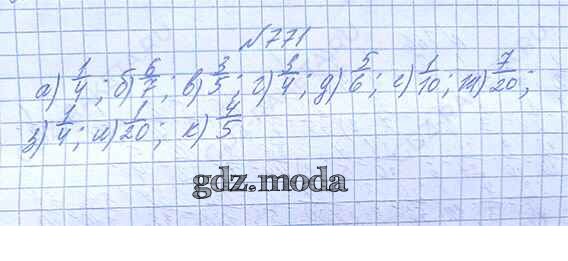 №771
а) 1/4; б) 6/7; в) 3/5; г) 3/4; д) 5/6; е) 1/10; ж) 7/20;
з) 1/4; и) 1/20; к) 4/5
gdz.moda